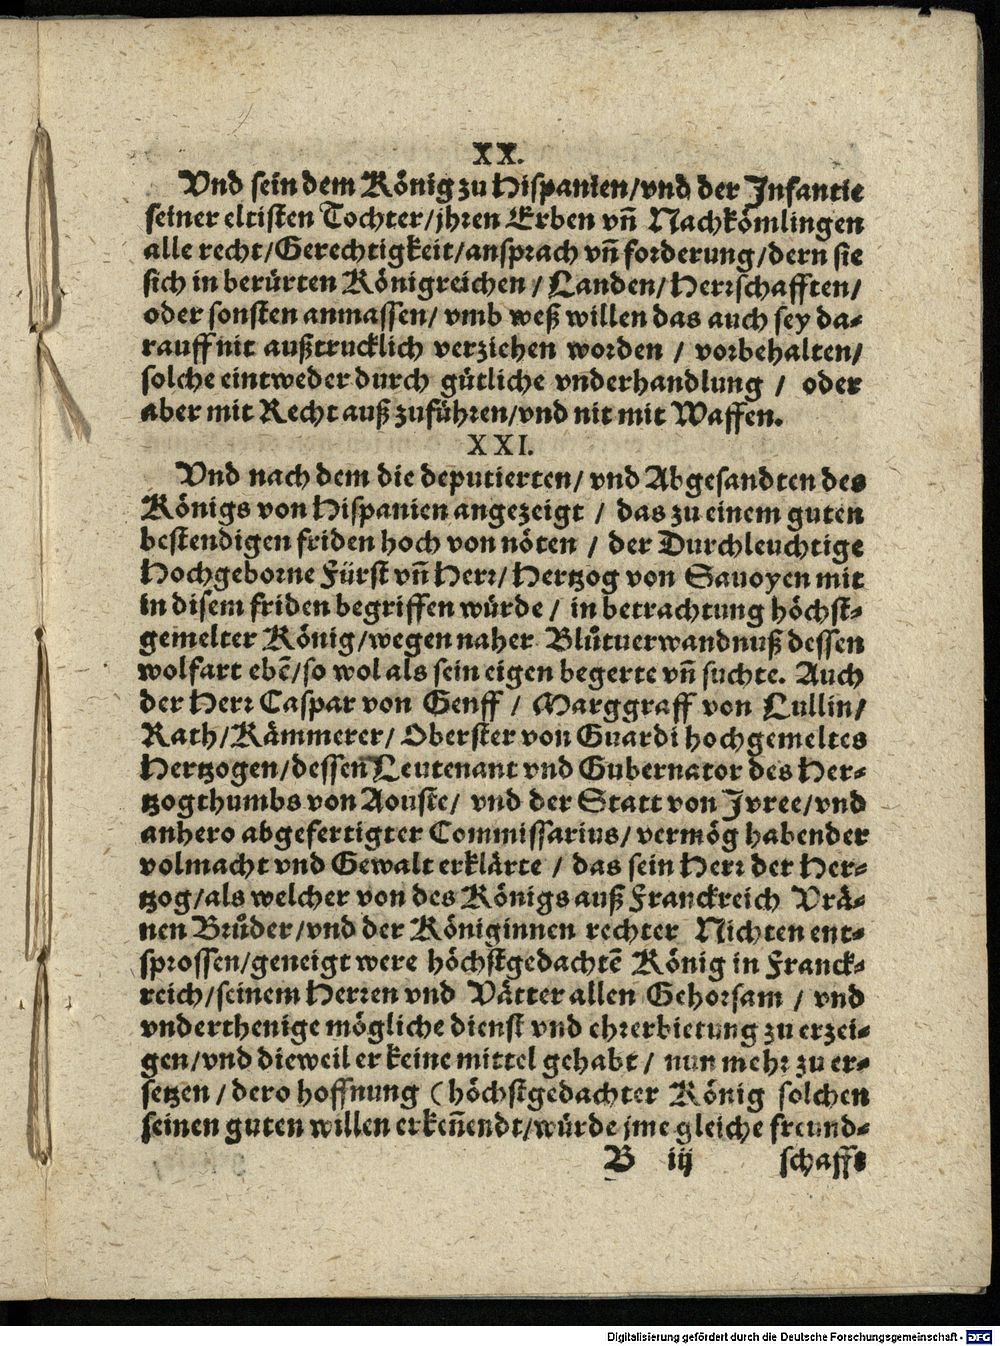 XX.
Vnd sein dem König zu Hispanien/vnd der Infantie
seiner eltisten Tochter/jhren Erben vñ Nachkömlingen
alle recht/Gerechtigkeit/ansprach vñ forderung/dern sie
sich in berürten Königreichen / Landen/Herrschafften/
oder sonsten anmassen/ vmb weß willen das auch sey da-
rauff nit außtrucklich verziehen worden / vorbehalten/
solche eintweder durch gütliche vnderhandlung / oder
aber mit Recht auß zuführen/vnd nit mit Waffen.
XXI.
Vnd nach dem die deputierten/ vnd Abgesandten des
Königs von Hispanien angezeigt / das zu einem guten
bestendigen friden hoch von nöten / der Durchleuchtige
Hochgeborne Fürst vñ Herr/Hertzog von Sauoyen mit
in disem friden begriffen würde / in betrachtung höchst-
gemelter König/wegen naher Blůtuerwandnuß dessen
wolfart ebē/so wol als sein eigen begerte vñ suchte. Auch
der Herr Caspar von Genff / Marggraff von Lullin/
Rath/Kämmerer/ Oberster von Guardi hochgemeltes
Hertzogen/dessen Leutenant vnd Gubernator des Her-
tzogthumbs von Aouste/ vnd der Statt von Jvree/vnd
anhero abgefertigter Commissarius/vermög habender
volmacht vnd Gewalt erklärte / das sein Herr der Her-
tzog/als welcher von des Königs auß Franckreich Vrä-
nen Brůder/vnd der Königinnen rechter Nichten ent-
sprossen/geneigt were höchstgedachtē König in Franck-
reich/seinem Herren vnd Vätter allen Gehorsam / vnd
vnderthenige mögliche dienst vnd ehrerbietung zu erzei-
gen/vnd dieweil er keine mittel gehabt / nun mehr zu er-
setzen / dero hoffnung (höchstgedachter König solchen
seinen guten willen erkeñendt/würde jme gleiche freund-
B iij schafft
Digitalisierung gefördert durch die Deutsche Forschungsgemeinschaft - DFG